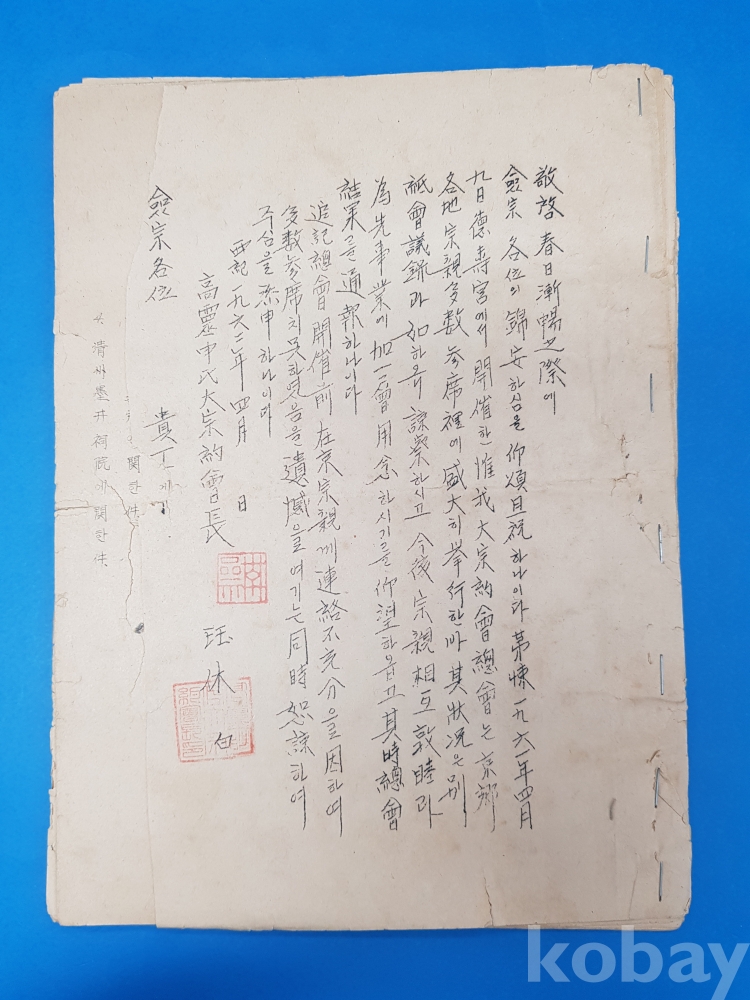 敬啓 春日漸暢之際에
僉宗 各位의 錦安하심을 仰頌且祝하나이다 第悚 一九六一年四月
九日德壽宮에서 開催한 惟我大宗約會總會는 京鄕
各地宗親多數 參席裡에 盛大히 擧行한바 其狀況은 別
紙會議錄과 如하오니 諒察하시고 今後宗親相互敦睦과
為先事業에 加一層用念하시기를 仰望하옵고 其時總會
結果를 通報하나이다
追記總會開催前 在京宗親에 連絡不充分을 因하여
多數參席치못하였음을 遺憾으로 여기는 同時 恕諒하여
주심을 忝申하나이다
西紀一九六二年 四月 日
高靈申氏大宗約會長
珏休 白
僉宗各位
貴下
關한 件
4. 淸州墨井 關한 件
kobay